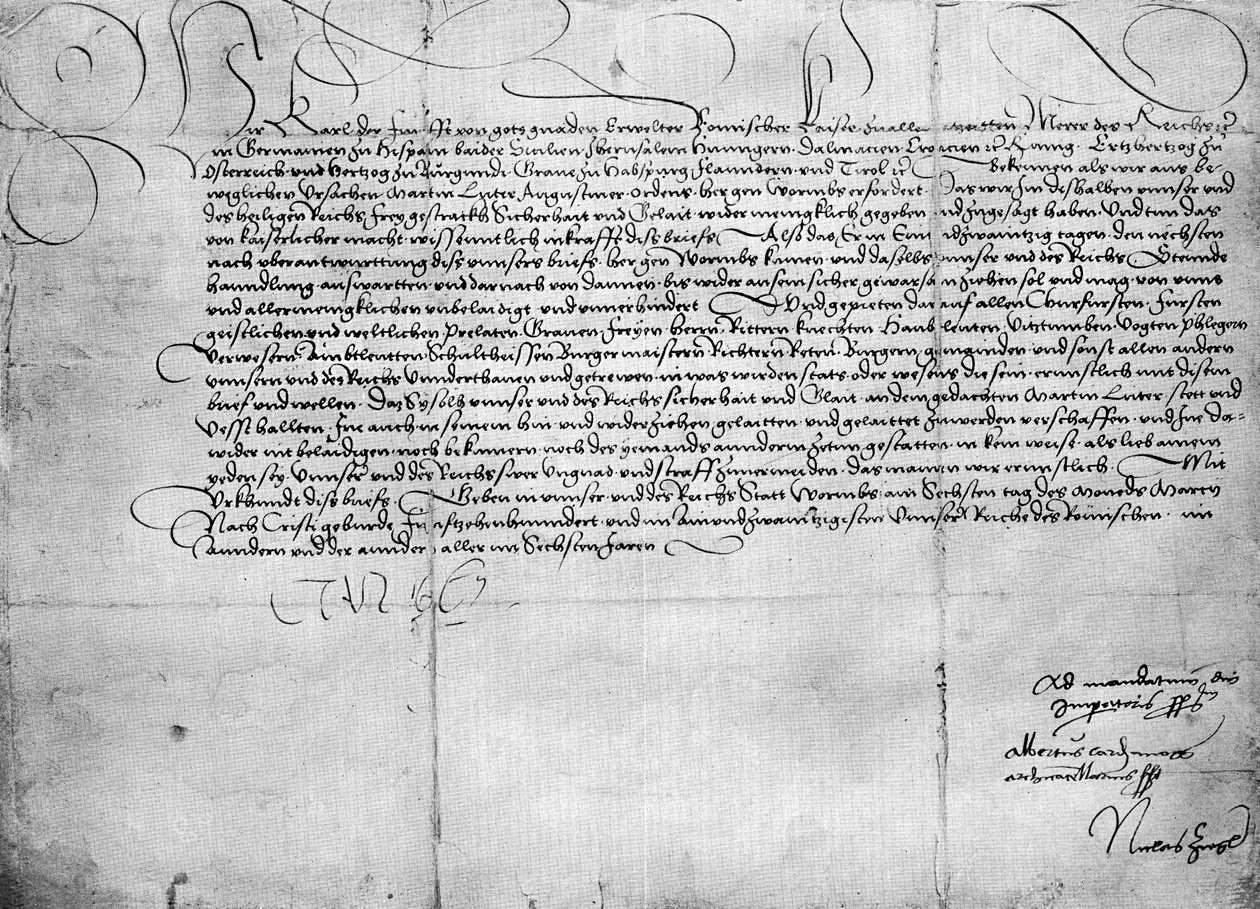 Wir Karl der Funfft von gots gnaden Erwelter Romischer Kaiser zu allen zeitten Merer des Reichs ec
in Germanien zu Hispani baider Sicilien Jherusalem Hungern Dalmacien Croacien ec Kunig Ertzhertzog zu
Osterreich und Hertzog zu Burgundi Grave zu Habspurg Flanndern und Tirol ec Bekennen als wir aus be
weglichen Ursachen Martin Luter Augustiner ordens her gen Wormbs erfordert Das wir Im deshalben unnser und
des heiligen Reichs frey gestrackh Sicherhait und Gelait wider menigklich gegeben und zugesagt haben Und tun das
von kaiserlicher macht wissenntlich in krafft diss briefs Also das Er in Ein und zwaintzig tagen den nechsten
nach uberantwurttung diss unnsers briefs her gen Wormbs kumen und daselbs unnser und des Reichs Stennde
hanndlung auswartten und darnach von dannen bis wider an sein sicher gewarsam ziehen sol und mag von unns
und allermenigklichen unbelaidigt und unverhindert Und gepieten darauf allen Churfursten Fursten
geistlichen und weltlichen Prelaten Graven Freyen herrn Rittern knechten Haubtleuten Vitztumben Vogten phlegern
Verwesern Ambtleutten Schultheissen Burgermaistern Richtern Reten Burgern gemainden und sonst allen andern
unnsern und des Reichs Underthanen und getrewen in was wirden stats oder wesens die sein ernnstlich mit disem
brief und wellen Daz Sy solh unnser und des Reichs sicherhait und Glait an dem gedachten Martin Luter stett und
vesst hallten Ine auch in seinem hin und widerziehen gelaitten und gelaittet zu werden verschaffen und Ine da-
wider nit belaidigen noch bekumern noch des yemands annderm zetun gestatten in kein weise als lieb ainem
yeden sey Unnser und des Reichs swer Ungnad und straff zuvermeiden das mainen wir ernnstlich Mit
Urkhundt diss briefs Geben in unnser und des Reichs Statt Wormbs am Sechsten tag des Moneds Marcy
Nach Cristi geburde Funfftzehenhundert und im Ainundzwaintzigisten Unnser Reiche des Römischen im
Anndern und der annder aller im Sechsten Jaren
Carolus
Ad mandatum dni
Imperatoris pps
Albertus card mogo
archicancellarius sst
Niclas Ziegler